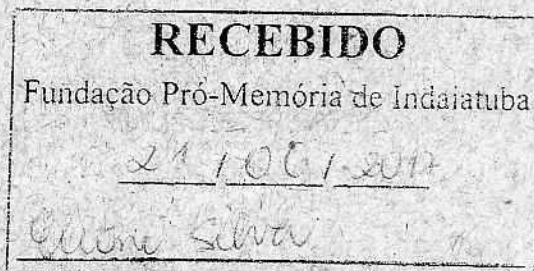 RECEBIDO
Fundação Pró-Memória de Indaiatuba
21 / 06 / 2017
Silva